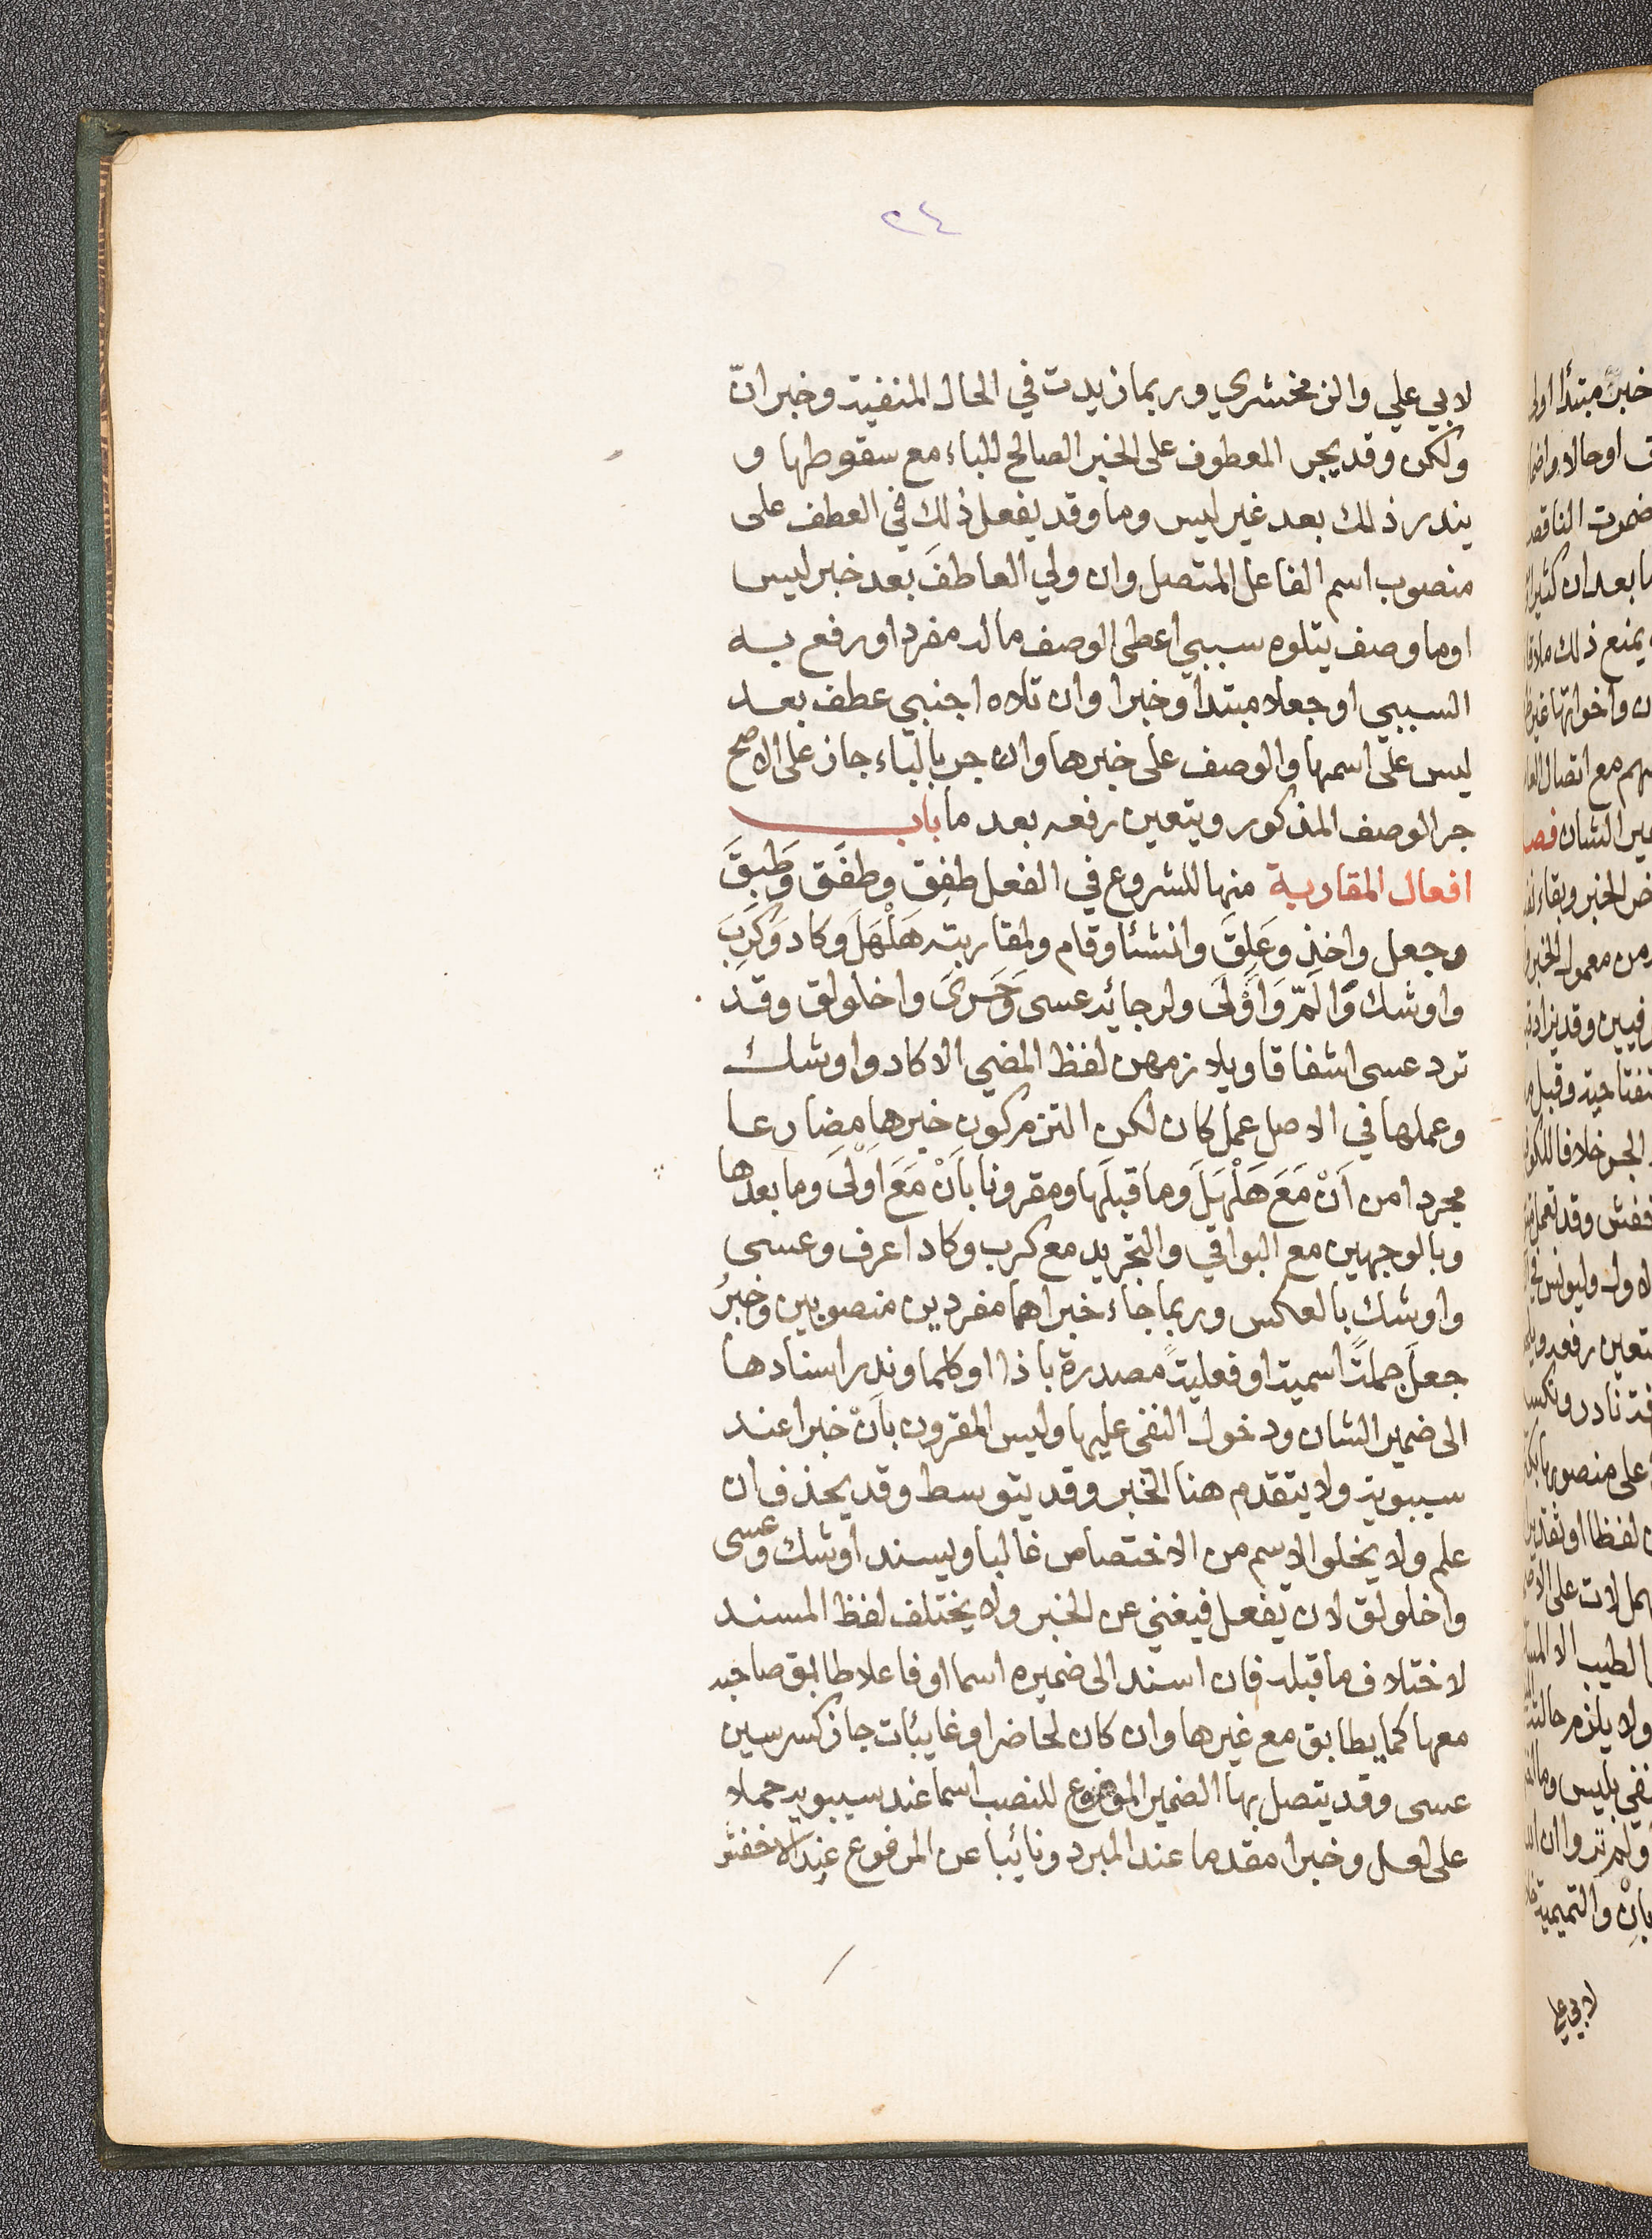 ٢٤
لابي علي والزمخشري وربما زيدت في الحال المنفية وخبر انّ
ولكن وقد يجر المعطوف على الخبر الصالح للباء مع سقوطها و
يندر ذلك بعد غير ليس وما وقد يفعل ذلك في العطف على
منصوب اسم الفاعل المتصل وان ولي العاطفَ بعد خبر ليس
او ما وصف يتلوه سببي اعطى الوصف ماله مفردا ورفع به
السببي او جعلا مبتدا وخبرا وان تلاه اجنبي عطف بعد
ليس على اسمها والوصف على خبرها وان جر بالباء جاز على الاصح
جر الوصف المذكور ويتعين رفعه بعد ما باب
افعال المقاربة منها للشروع في الفعل طفِق وطفَق وَطَبِقَ
وجعل واخذ وعَلِقَ وانشئا وقام ولمقاربته هَلْهَلَ وكاد وَكَرِبَ
واوشك وَالَمّ وَاَوْلَى ولرجائه عسى وَحَرَىَ واخلولق وقد
ترد عسى اشفاقا ويلازمهن لفظ المضي الا كاد واوشك
وعملها في الاصل عمل كان لكن التزم كون خبرها مضارعا
مجردا من اَنْ مَعَ هَلْهَلَ وما قبلَها ومقرونا باَنْ مَعَ اَوْلَىَ وما بعدها
وبالوجهين مع البواقي والتجريد مع كرب وكاد اعرف وعسى
واوشك بالعكس وربما جاء خبراهما مفردين منصوبين وخبرُ
جعلَ جملةً اسمية او فعليةً مصدرة باذا او كلما وندر اسنادها
الى ضمير الشان ودخول النفى عليها وليس المقرون باَنْ خبرا عند
سيبويه ولا يتقدم هنا الخبر وقد يتوسط وقد يحذف ان
علم ولا يخلوا الاسم من الاختصاص غالبا ويسند اوشك وعسى
واخلولق لان يفعل فيغني عن الخبر ولا يختلف لفظ المسند
لاختلاف ما قبله فان اسند الى ضميره اسما او فاعلا طابق صاحبه
معها كما يطابق مع غيرها وان كان لحاضر او غايبات جاز كسر سين
عسى وقد يتصل بها الضمير الموضوع للنصب اسما عند سيبويه حملا
على لعل وخبرا مقدما عند المبرد ونائبا عن المرفوع عند الاخفش
لابي علي